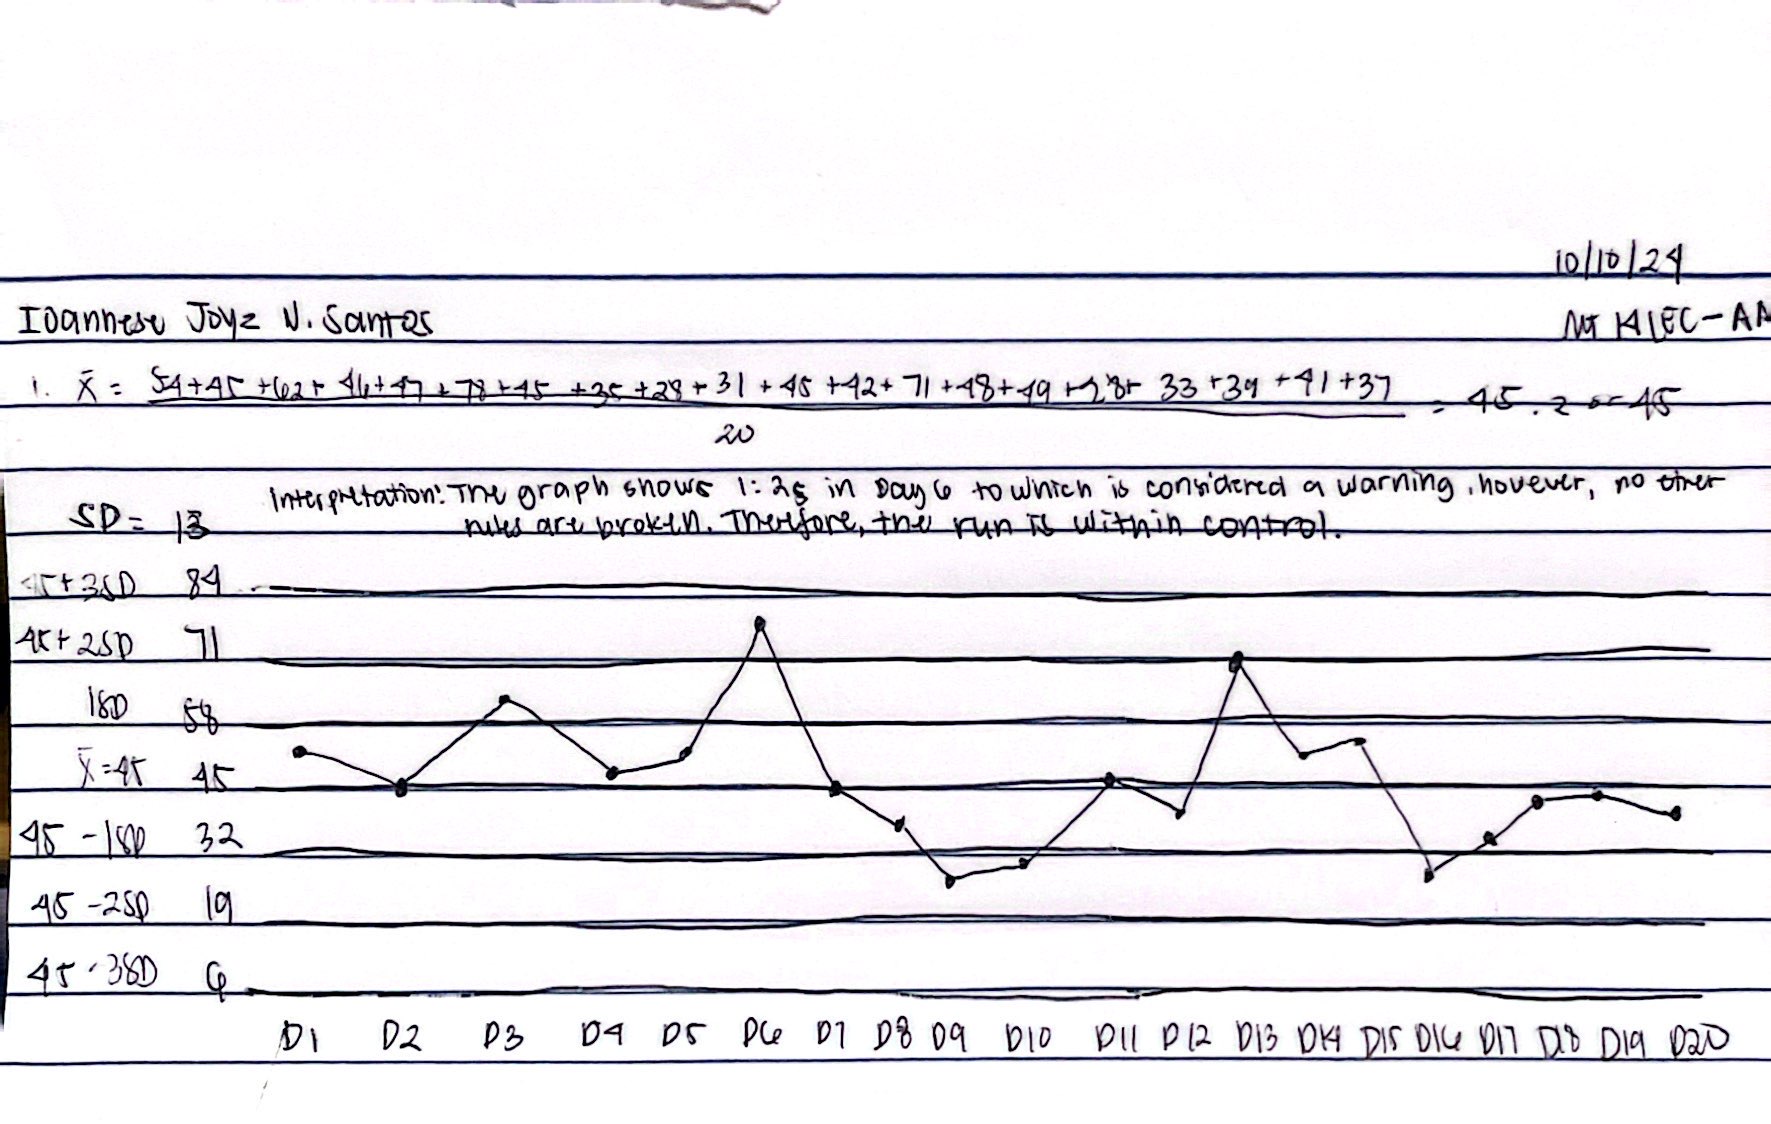 10/10/24
Ioannese Joyz N. Santos
1. x̄ = 54+45+62+46+47+78+45+35+28+31+45+42+71+48+49+28+33+39+41+37 = 45.2 or 45
20
Interpretation: The graph shows 1:2s in Day 6 to which is considered a warning, however, no other
SD = 13 rules are broken. Therefore, the run is within control.
45+3SD 84
45+2SD 71
1SD 58
x̄=45 45
45 -1SD 32
45 -2SD 19
45 -3SD 6
D1 D2 D3 D4 D5 D6 D7 D8 D9 D10 D11 D12 D13 D14 D15 D16 D17 D18 D19 D20